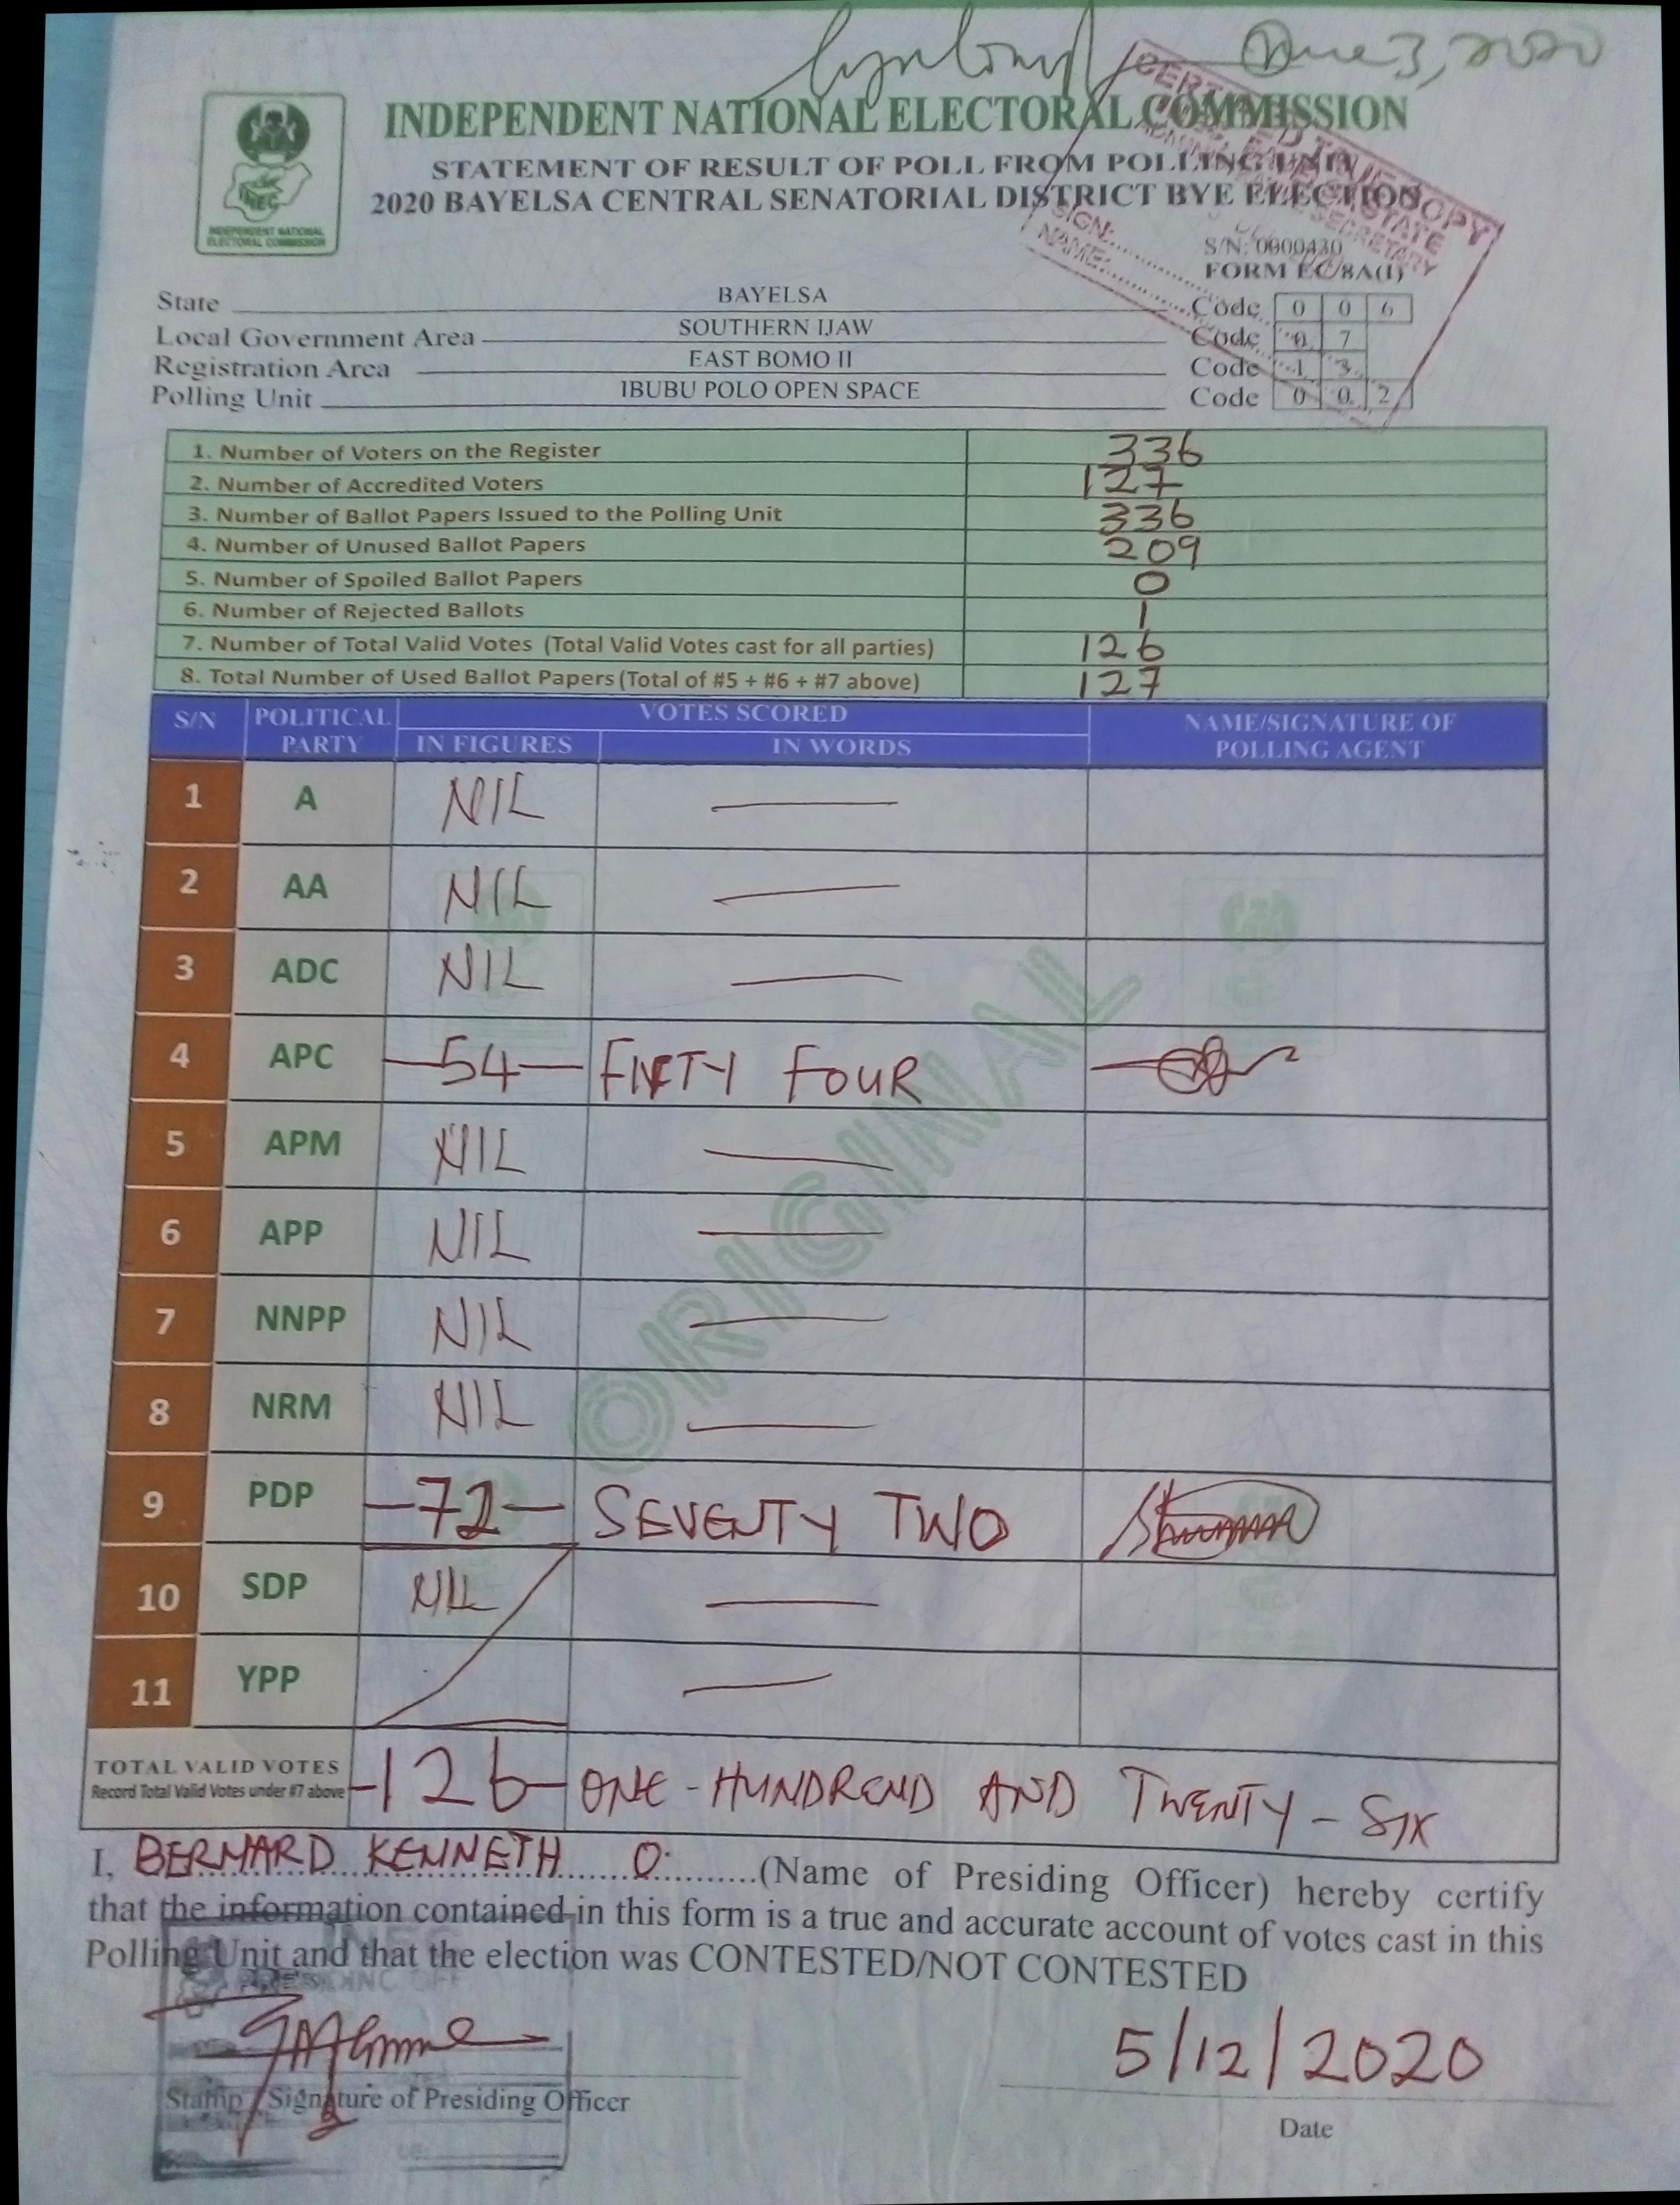 3, 2020
INDEPENDENT NATIONAL ELECTORAL COMMISSION
STATEMENT OF RESULT OF POLL FROM POLLING UNIT
2020 BAYELSA CENTRAL SENATORIAL DISTRICT BYE ELECTION
INDEPENDENT NATIONAL
ELECTORAL COMMISSION
SIGN:
NAME:
S/N: 0000430
FORM EC/8A(I)
State BAYELSA Code 0 0 6
Local Government Area SOUTHERN IJAW Code 0 7
Registration Area EAST BOMO II Code 1 3
Polling Unit IBUBU POLO OPEN SPACE Code 0 0 2
1. Number of Voters on the Register 336
2. Number of Accredited Voters 127
3. Number of Ballot Papers Issued to the Polling Unit 336
4. Number of Unused Ballot Papers 209
5. Number of Spoiled Ballot Papers 0
6. Number of Rejected Ballots 1
7. Number of Total Valid Votes (Total Valid Votes cast for all parties) 126
8. Total Number of Used Ballot Papers (Total of #5 + #6 + #7 above) 127
S/N POLITICAL PARTY VOTES SCORED NAME/SIGNATURE OF POLLING AGENT
IN FIGURES IN WORDS
1 A NIL
2 AA NIL
3 ADC NIL
4 APC -54- FIFTY FOUR
5 APM NIL
6 APP NIL
7 NNPP NIL
8 NRM NIL
9 PDP -72- SEVENTY TWO
10 SDP NIL
11 YPP
ORIGINAL
TOTAL VALID VOTES
Record Total Valid Votes under #7 above -126- ONE-HUNDREND AND TWENTY-SIX
I, BERNARD KENNETH O. (Name of Presiding Officer) hereby certify
that the information contained in this form is a true and accurate account of votes cast in this
Polling Unit and that the election was CONTESTED/NOT CONTESTED
5/12/2020
Stamp / Signature of Presiding Officer
Date